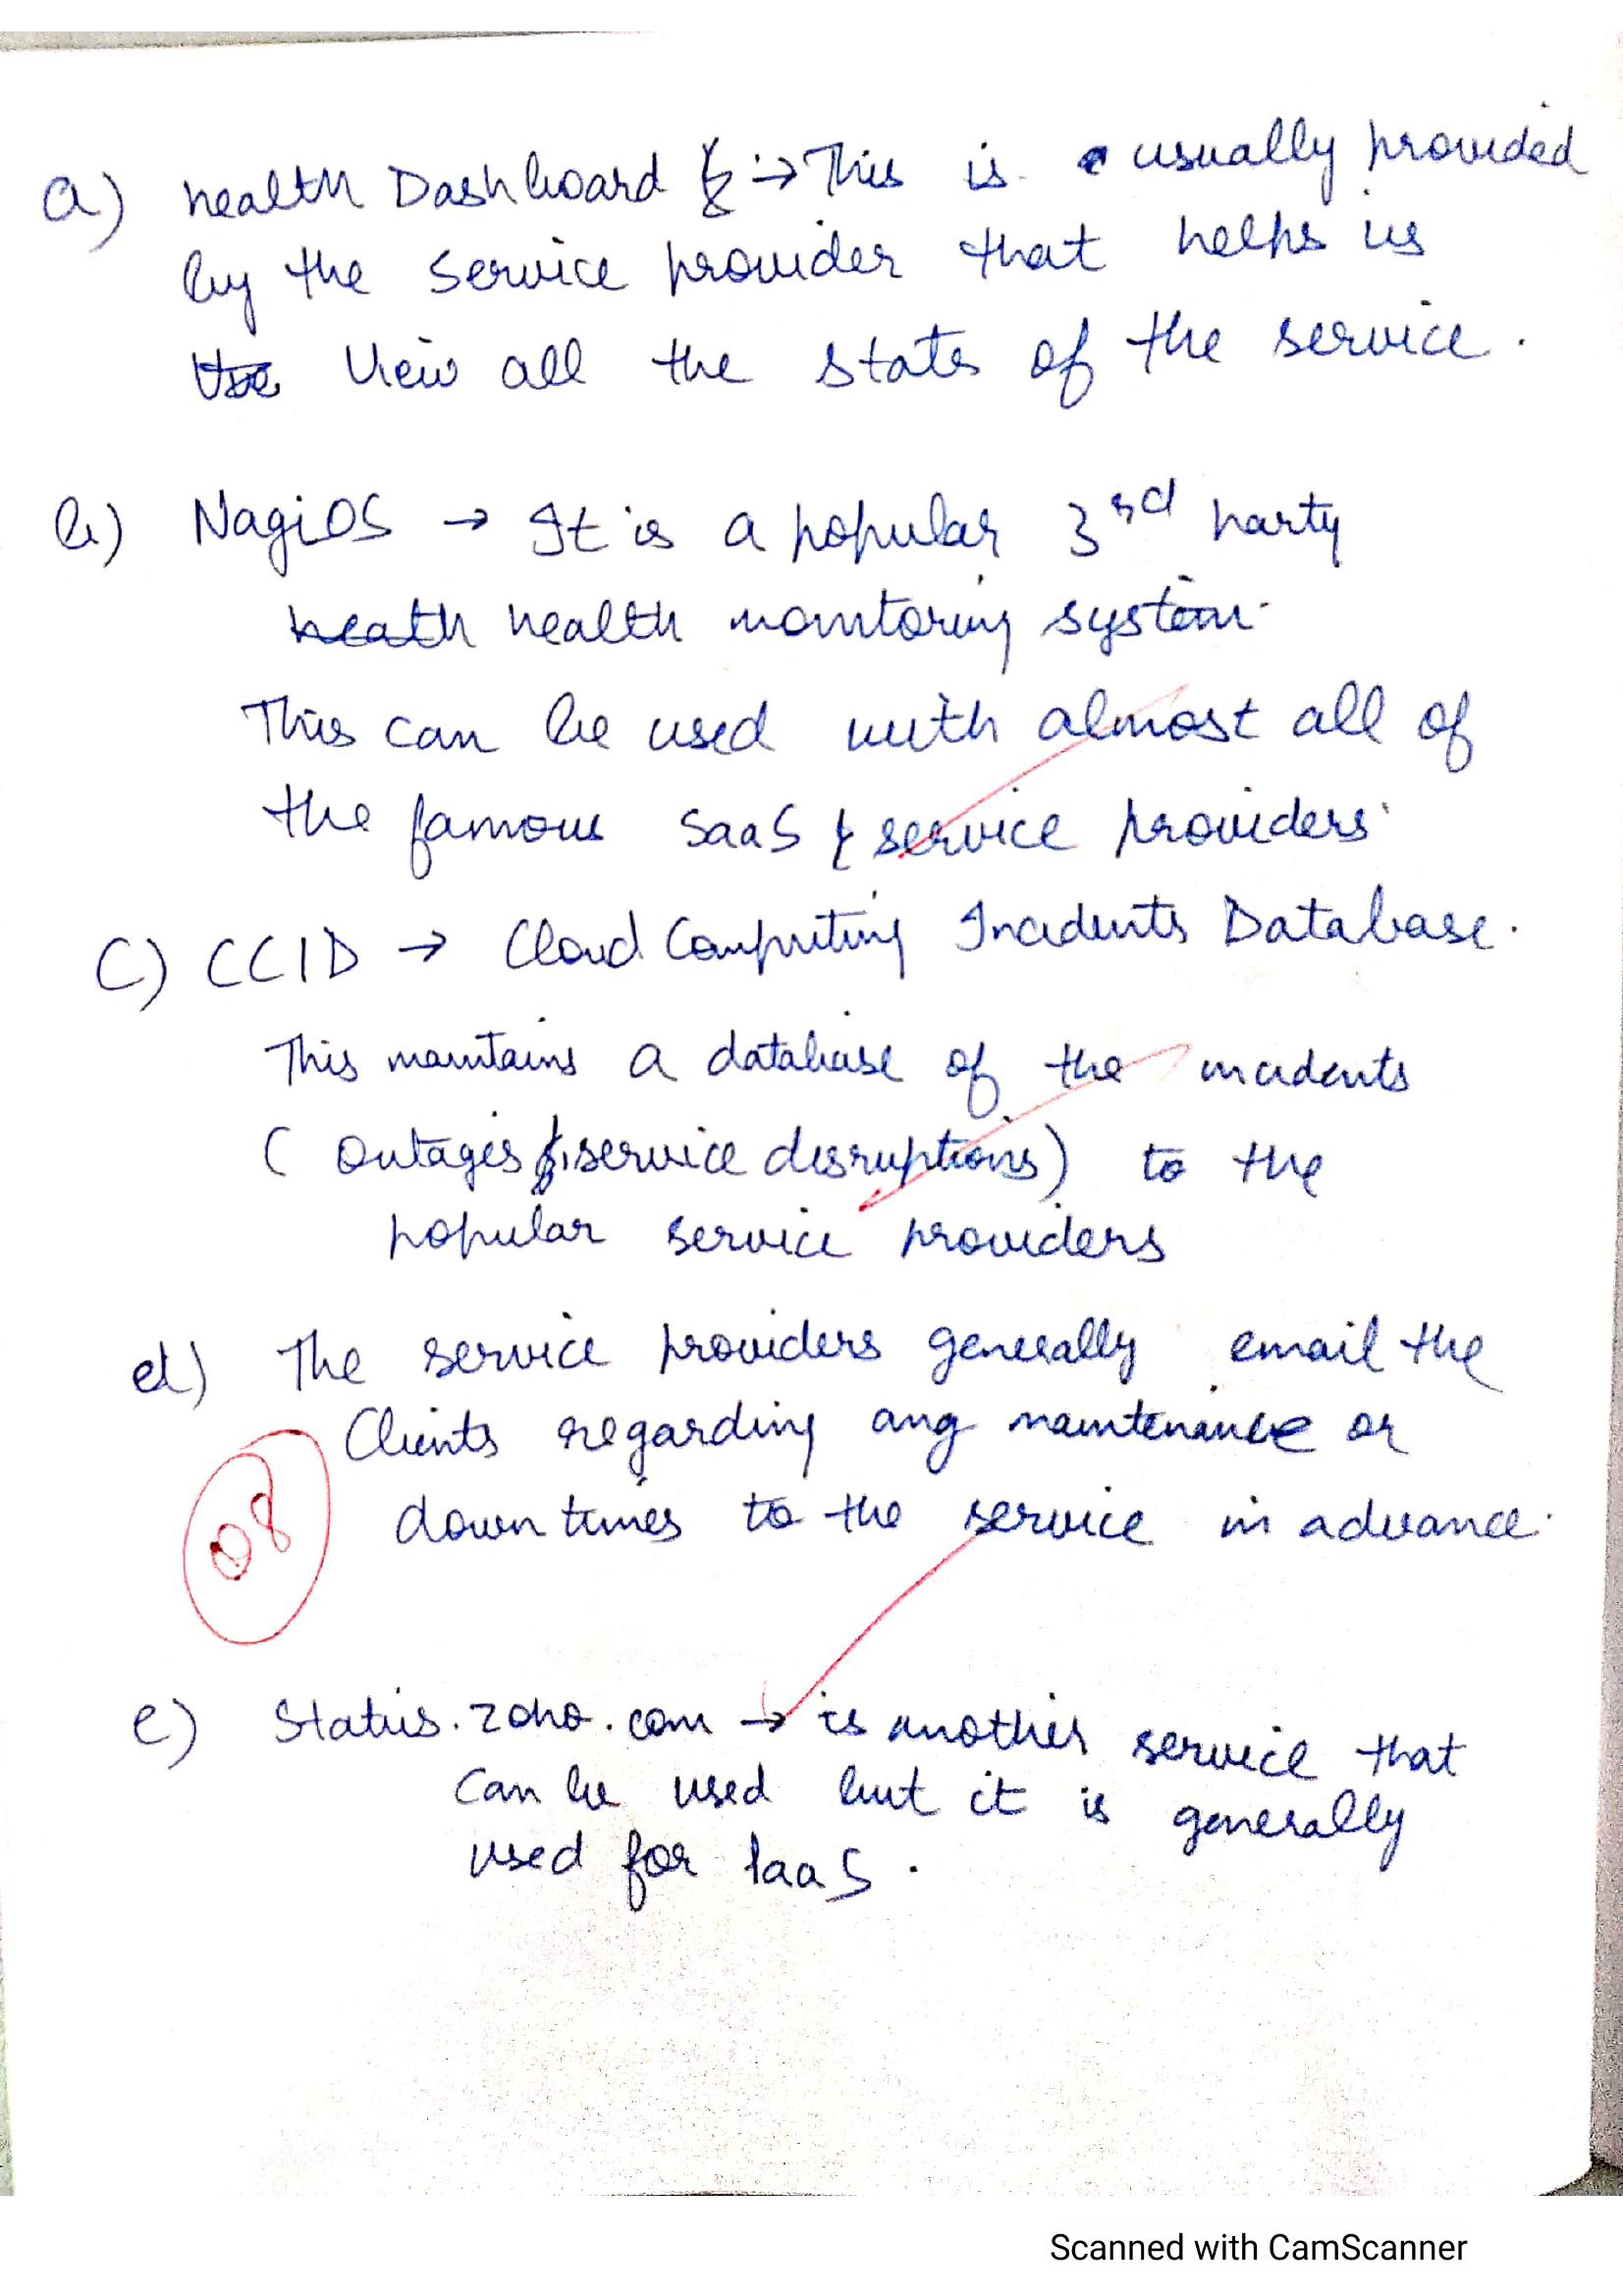 a) health Dashboard :→ This is usually provided
by the service provider that helps us
view all the stats of the service.
b) NagiOS → It is a popular 3rd party
heath health monitoring system.
This can be used with almost all of
the famous SaaS & service providers.
C) CCID → Cloud Computing Incidents Database.
This maintains a database of the incidents
( outages & service disruptions) to the
popular service providers
d) The service providers generally email the
Clients regarding any maintenance or
down times to the service in advance.
08
e) Status.zoho.com → is another service that
can be used but it is generally
used for IaaS.
Scanned with CamScanner